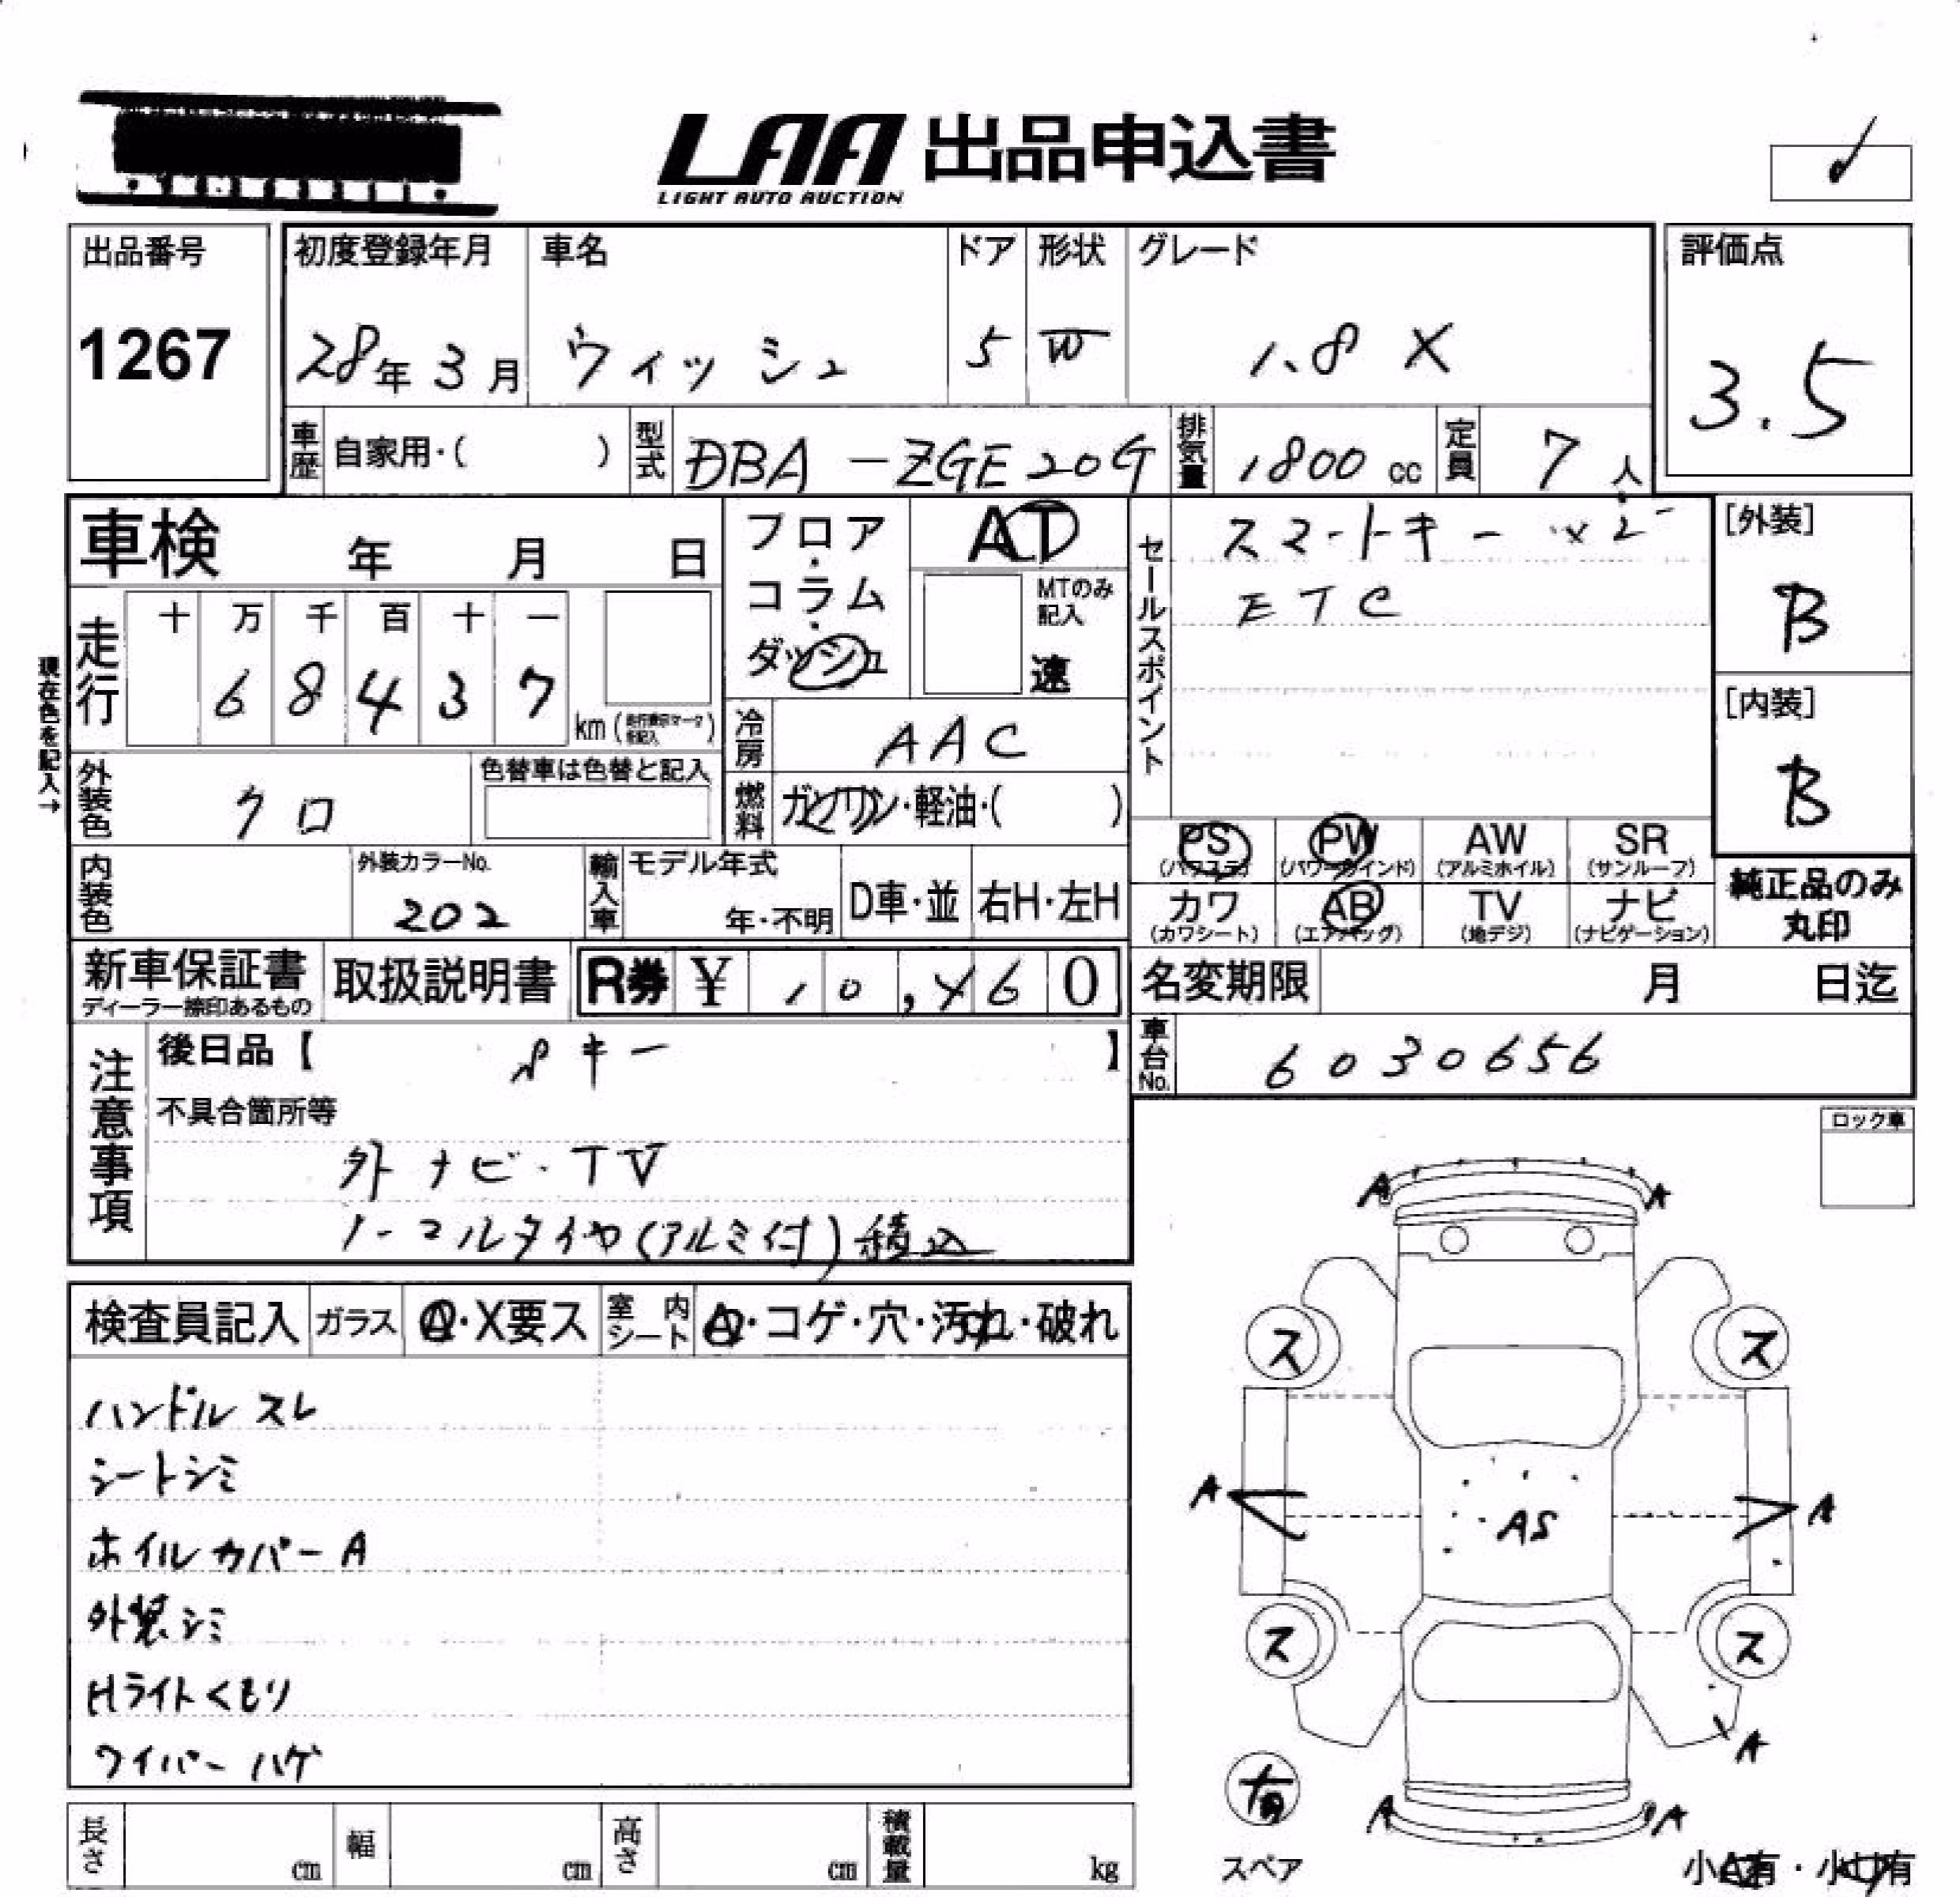 LAA 出品申込書
LIGHT AUTO AUCTION
出品番号
1267
初度登録年月
28年 3月
車名
ウィッシュ
ドア
5
形状
W
グレード
1.8 X
評価点
3.5
車歴 自家用・( )
型式 DBA-ZGE20G
排気量 1800 cc
定員 7 人
車検 年 月 日
走行
十 万 千 百 十 一
6 8 4 3 7
km (走行表示マークを記入)
現在色を記入→
フロア・コラム・ダッシュ
AT
MTのみ記入
速
冷房 AAC
燃料 ガソリン・軽油・( )
セールスポイント
スマートキー ×2
ETC
[外装]
B
[内装]
B
外装色 クロ
色替車は色替と記入
内装色
外装カラーNo.
202
輸入車 モデル年式
年・不明
D車・並
右H・左H
PS (パワステ)
PW (パワーウインド)
AW (アルミホイル)
SR (サンルーフ)
カワ (カワシート)
AB (エアバッグ)
TV (地デジ)
ナビ (ナビゲーション)
純正品のみ
丸印
新車保証書
ディーラー捺印あるもの
取扱説明書
R券 ¥ 10,460
名変期限 月 日迄
車台No. 6030656
注意事項
後日品【 キー 】
不具合箇所等
外 ナビ・TV
ノーマルタイヤ(アルミ付)積込
ロック車
検査員記入
ガラス A・X要ス
室内シート A・コゲ・穴・汚れ・破れ
ハンドルスレ
シートシミ
ホイルカバーA
外装シミ
Hライトくもり
ワイパーハゲ
A A
ス ス
A AS A
ス ス
A
A A
有
スペア
小A有・小U有
長さ cm
幅 cm
高さ cm
積載量 kg